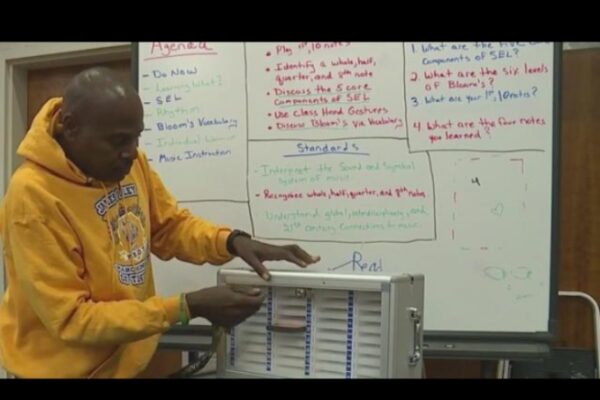 Agenda
- Do Now
- Learning What?
- SEL
- Rhythm
- Bloom's Vocabulary
- Individual
- Music Instruction
• Play 1st, 10 notes
• Identify a whole, half,
quarter, and 8th note
• Discuss the 5 core
Components of SEL
• Use Class Hand Gestures
• Discuss Bloom's Via Vocabulary
Standards
- Interpret the Sound and Symbol
System of music
- Recognize whole, half, quarter, and 8th notes
Understand global, interdisciplinary, and
21st Century Connections to music
1. What are the
Components of SEL?
2. What are the Six levels
of Bloom's?
3. What are your 1st, 10 notes?
4 What are the four notes
you learned?
4